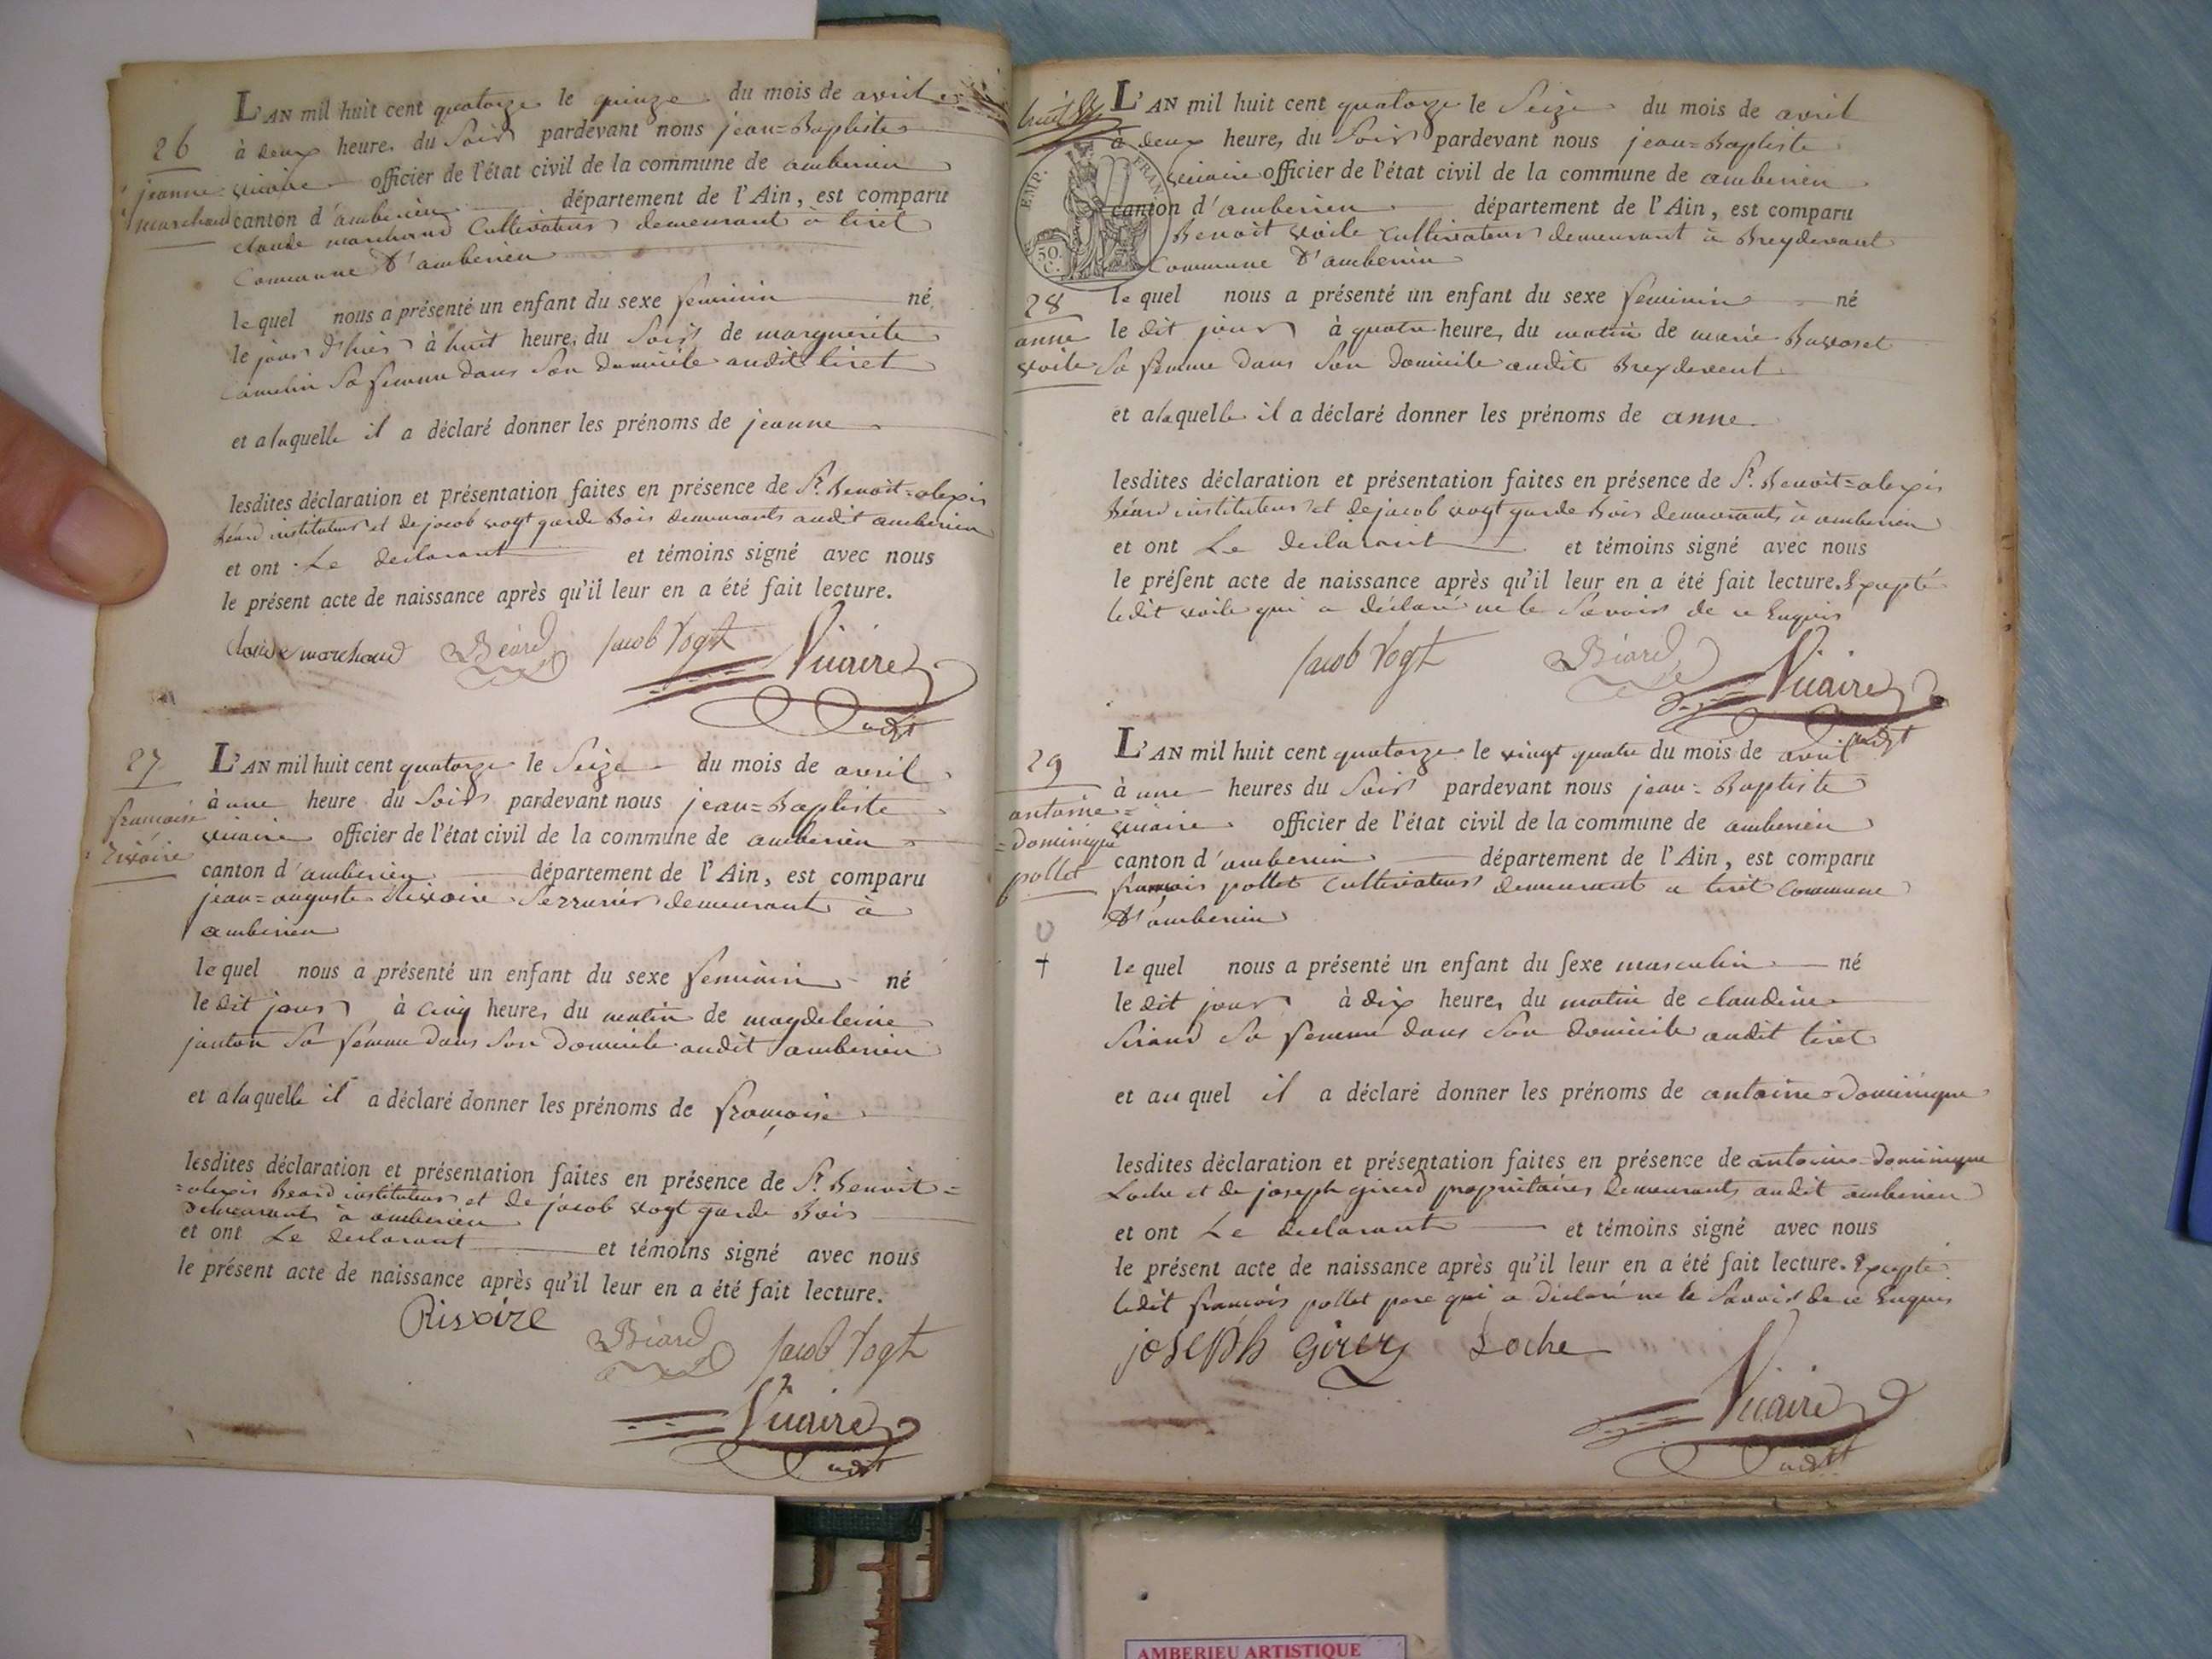 26
jeanne
marchand
L'AN mil huit cent quatorze le quinze du mois de avril
à deux heures du Soir pardevant nous jean=Baptiste
vicaire officier de l'état civil de la commune de amberieu
canton d'amberieu département de l'Ain, est comparu
claude marchand Cultivateur demeurant a tiret
Commune D'amberieu
lequel nous a présenté un enfant du sexe feminin né
le jour d'hier à huit heures du Soir de marguerite
Camelin Sa femme dans Son Domicile audit tiret
et a laquelle il a déclaré donner les prénoms de jeanne
lesdites déclaration et présentation faites en présence de Sr. Benoit=alexis
béard instituteur et de jacob vogt garde Bois demeurants audit amberieu
et ont Le declarant et témoins signé avec nous
le présent acte de naissance après qu'il leur en a été fait lecture.
claude marchand Béard Jacob Vogt Vicaire
adjt
27
francoise
rivoire
L'AN mil huit cent quatorze le Seize du mois de avril
à une heure du Soir pardevant nous jean=Baptiste
vicaire officier de l'état civil de la commune de amberieu
canton d'amberieu département de l'Ain, est comparu
jean=auguste Rivoire Serrurier demeurant à
amberieu
lequel nous a présenté un enfant du sexe feminin né
le dit jour à cinq heures du matin de magdeleine
janton Sa femme dans Son Domicile audit amberieu
et a laquelle il a déclaré donner les prénoms de francoise
lesdites déclaration et présentation faites en présence de Sr. Benoit=
=alexis Beard instituteur et de jacob vogt garde Bois
demeurants à amberieu
et ont Le declarant et témoins signé avec nous
le présent acte de naissance après qu'il leur en a été fait lecture.
Rivoire Béard Jacob Vogt
Vicaire
adjt
EMP. FRAN
50.
C.
28
anne
voile
L'AN mil huit cent quatorze le Seize du mois de avril
à deux heures du Soir pardevant nous jean=Baptiste
vicaire officier de l'état civil de la commune de amberieu
canton d'amberieu département de l'Ain, est comparu
Benoit voile cultivateur demeurant à Breydevent
Commune D'amberieu
lequel nous a présenté un enfant du sexe feminin né
le dit jour à quatre heures du matin de marie
Sa femme dans Son Domicile audit Breydevent
et a laquelle il a déclaré donner les prénoms de anne
lesdites déclaration et présentation faites en présence de Sr. Benoit=alexis
béard instituteur et de jacob vogt garde Bois demeurants à amberieu
et ont Le declarant et témoins signé avec nous
le préſent acte de naissance après qu'il leur en a été fait lecture. Excepté
ledit voile qui a déclaré ne le Savoir de ce Enquis
Jacob Vogt Béard Vicaire
adjt
29
antoine=
=dominique
pollet
L'AN mil huit cent quatorze le vingt quatre du mois de avril
à une heures du Soir pardevant nous jean=Baptiste
vicaire officier de l'état civil de la commune de amberieu
canton d'amberieu département de l'Ain, est comparu
francois pollet Cultivateur demeurant a tiret Commune
D'amberieu
lequel nous a présenté un enfant du ſexe masculin né
le dit jour à dix heures du matin de claudine
Sirand Sa femme dans Son domicile audit tiret
et auquel il a déclaré donner les prénoms de antoine=Dominique
lesdites déclaration et présentation faites en présence de antoine=dominique
Loche et de joseph girerd propriétaires demeurants audit amberieu
et ont Le declarant et témoins signé avec nous
le présent acte de naissance après qu'il leur en a été fait lecture. Excepté
ledit francois pollet pere qui a déclaré ne le Savoir de ce Enquis
joseph Loche
Vicaire
adjt
AMBERIEU ARTISTIQUE